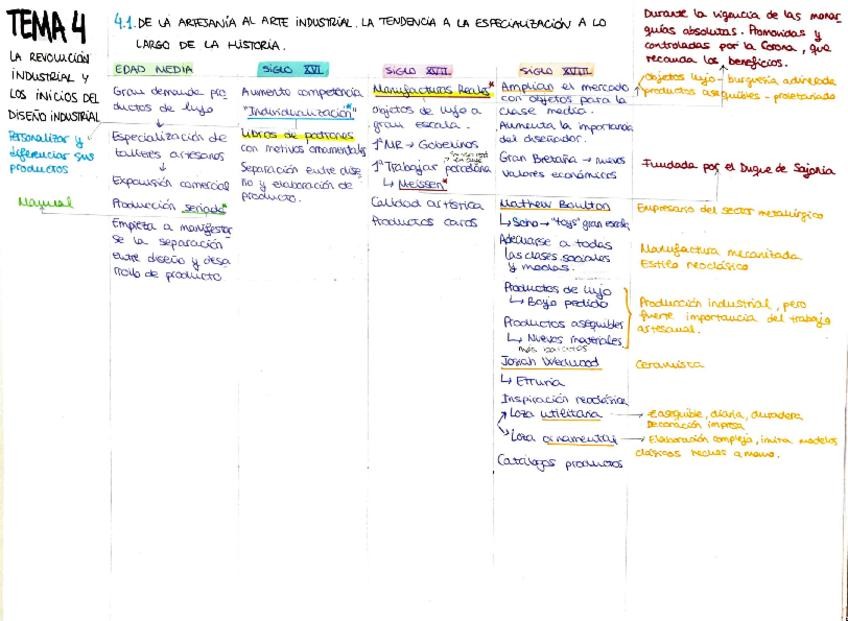 TEMA 4
LA REVOLUCIÓN
INDUSTRIAL Y
LOS INICIOS DEL
DISEÑO INDUSTRIAL
Personalizar y
diferenciar sus
productos
Manual
4.1. DE LA ARTESANÍA AL ARTE INDUSTRIAL. LA TENDENCIA A LA ESPECIALIZACIÓN A LO
LARGO DE LA HISTORIA.
EDAD MEDIA
Gran demanda pro-
ductos de lujo
↓
Especialización de
talleres artesanos
↓
Expansión comercial
↓
Producción seriada*
Empieza a manifestar
se la separación
entre diseño y desa
rrollo de producto.
SIGLO XVI
Aumento competencia
"Individualización"*
Libros de patrones
con motivos ornamentales
Separación entre dise
ño y elaboración de
producto.
SIGLO XVII
Manufacturas Reales*
Objetos de lujo a
gran escala.
1ª MR → Gobelinos
1ª Trabajar porcelana
↳ Meissen*
Calidad artística
Productos caros
SIGLO XVIII
Amplían el mercado
con objetos para la
clase media.
Aumenta la importancia
del diseñador.
Gran Bretaña → nuevos
valores económicos
Mathew Boulton
↳ Soho → "toys" gran escala
Adecuarse a todas
las clases sociales
y modas.
Productos de lujo
↳ Bajo pedido
Productos asequibles
↳ Nuevos materiales
más baratos
Josiah Wedwood
↳ Etruria
Inspiración neoclásica
Loza utilitaria
Loza ornamental
Catálogos productos
Durante la vigencia de las monar
quías absolutas. Promovidas y
controladas por la Corona, que
recauda los beneficios.
Objetos lujo - burguesía adinerada
productos asequibles - proletariado
Fundada por el Duque de Sajonia
Empresario del sector metalúrgico
Manufactura mecanizada
Estilo neoclásico
Producción industrial, pero
fuerte importancia del trabajo
artesanal.
Ceramista
→ Asequible, diaria, duradera
Decoración impresa
→ Elaboración compleja, imita modelos
clásicos hechos a mano.